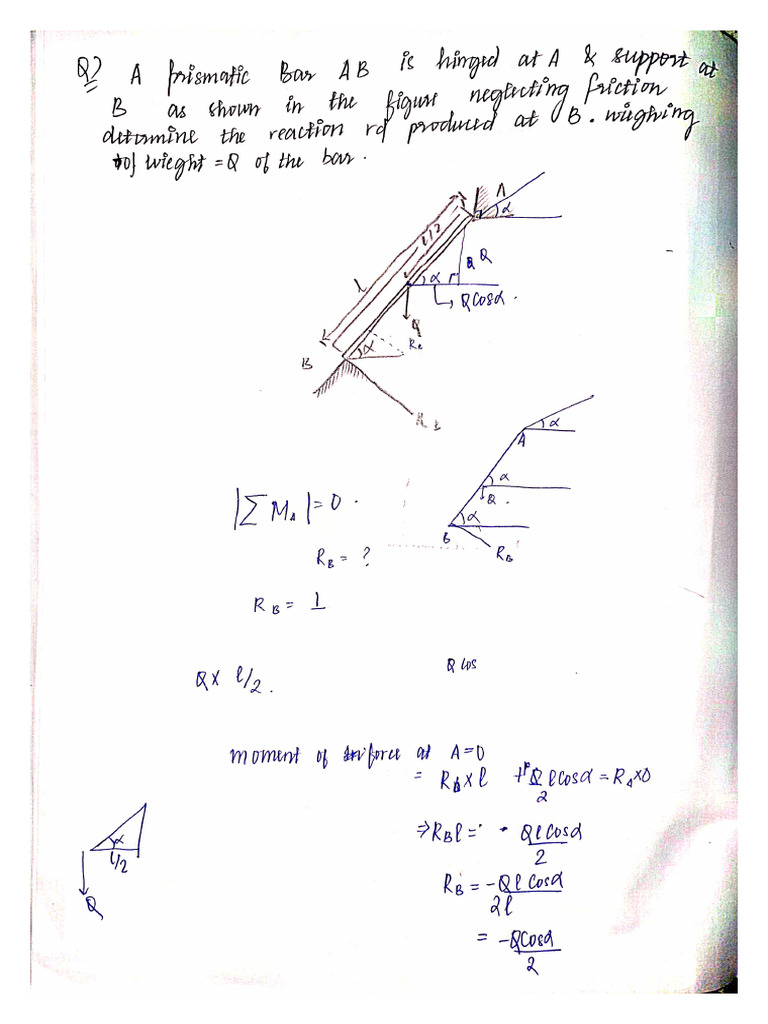 Q) A prismatic Bar AB is hinged at A & support at
B as shown in the figure neglecting friction
determine the reaction rd produced at B. wighing
of wieght = Q of the bar.
A
α
l/2
l
Q
α
Q cosα.
Q
B
α
R B
α
A
α
Q.
α
B
R B
|Σ M A| = 0.
R B = ?
R B = 1
Q cos
Q x l/2.
moment of force at A = 0
= R B x l + Q l cosα = R A x 0
2
α
l/2
Q
⇒ R B l = - Q l cosα
2
R B = - Q l cosα
2l
= - Q cosα
2